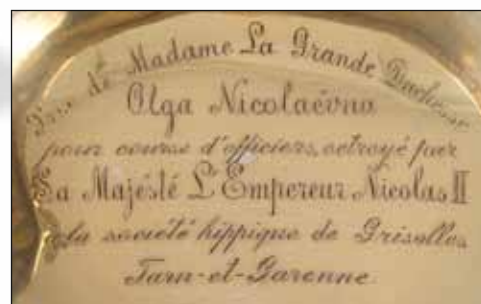 Prix de Madame La Grande Duchesse
Olga Nicolaévna
pour course d'officiers, octroyé par
Sa Majésté L'Empereur Nicolas II
à la societé hippique de Grisolles
Tarn-et-Garonne